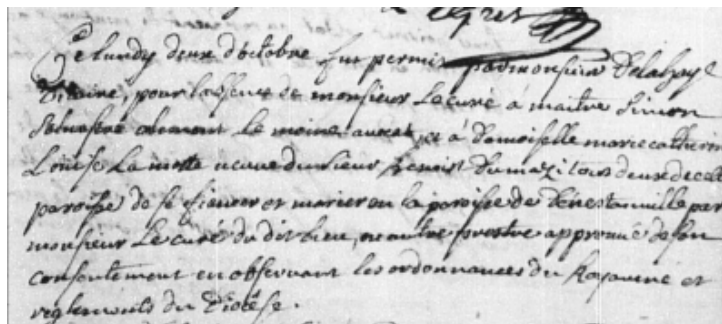 Ce lundy deux d'octobre fut permis par monsieur Delahaye
vicaire, pour l'absence de monsieur le curé à maitre Simon
le moine avocat, et à Damoiselle marie catherine
Louise La motte veuve du sieur Benoist tous deux de cette
paroisse de se fiancer et marier en la paroisse de Dénestanville par
monsieur Le curé du dit lieu, ou autre prestre approuvé de son
consentement en observant les ordonnances du Royaume et
reglements du Diocése.